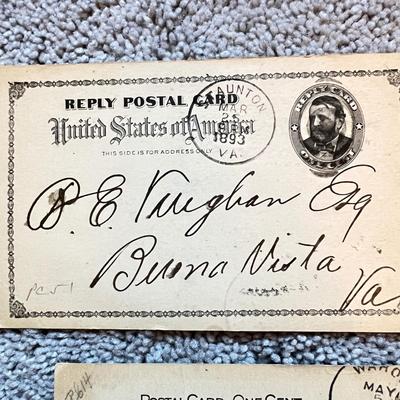 REPLY POSTAL CARD
United States of America
THIS SIDE IS FOR ADDRESS ONLY
STAUNTON
MAR
25
1893
VA.
REPLY CARD
ONE CENT
B. E. Vaughan Esq
Buena Vista
Va
PC 51
POSTAL CARD-ONE CENT
MAY